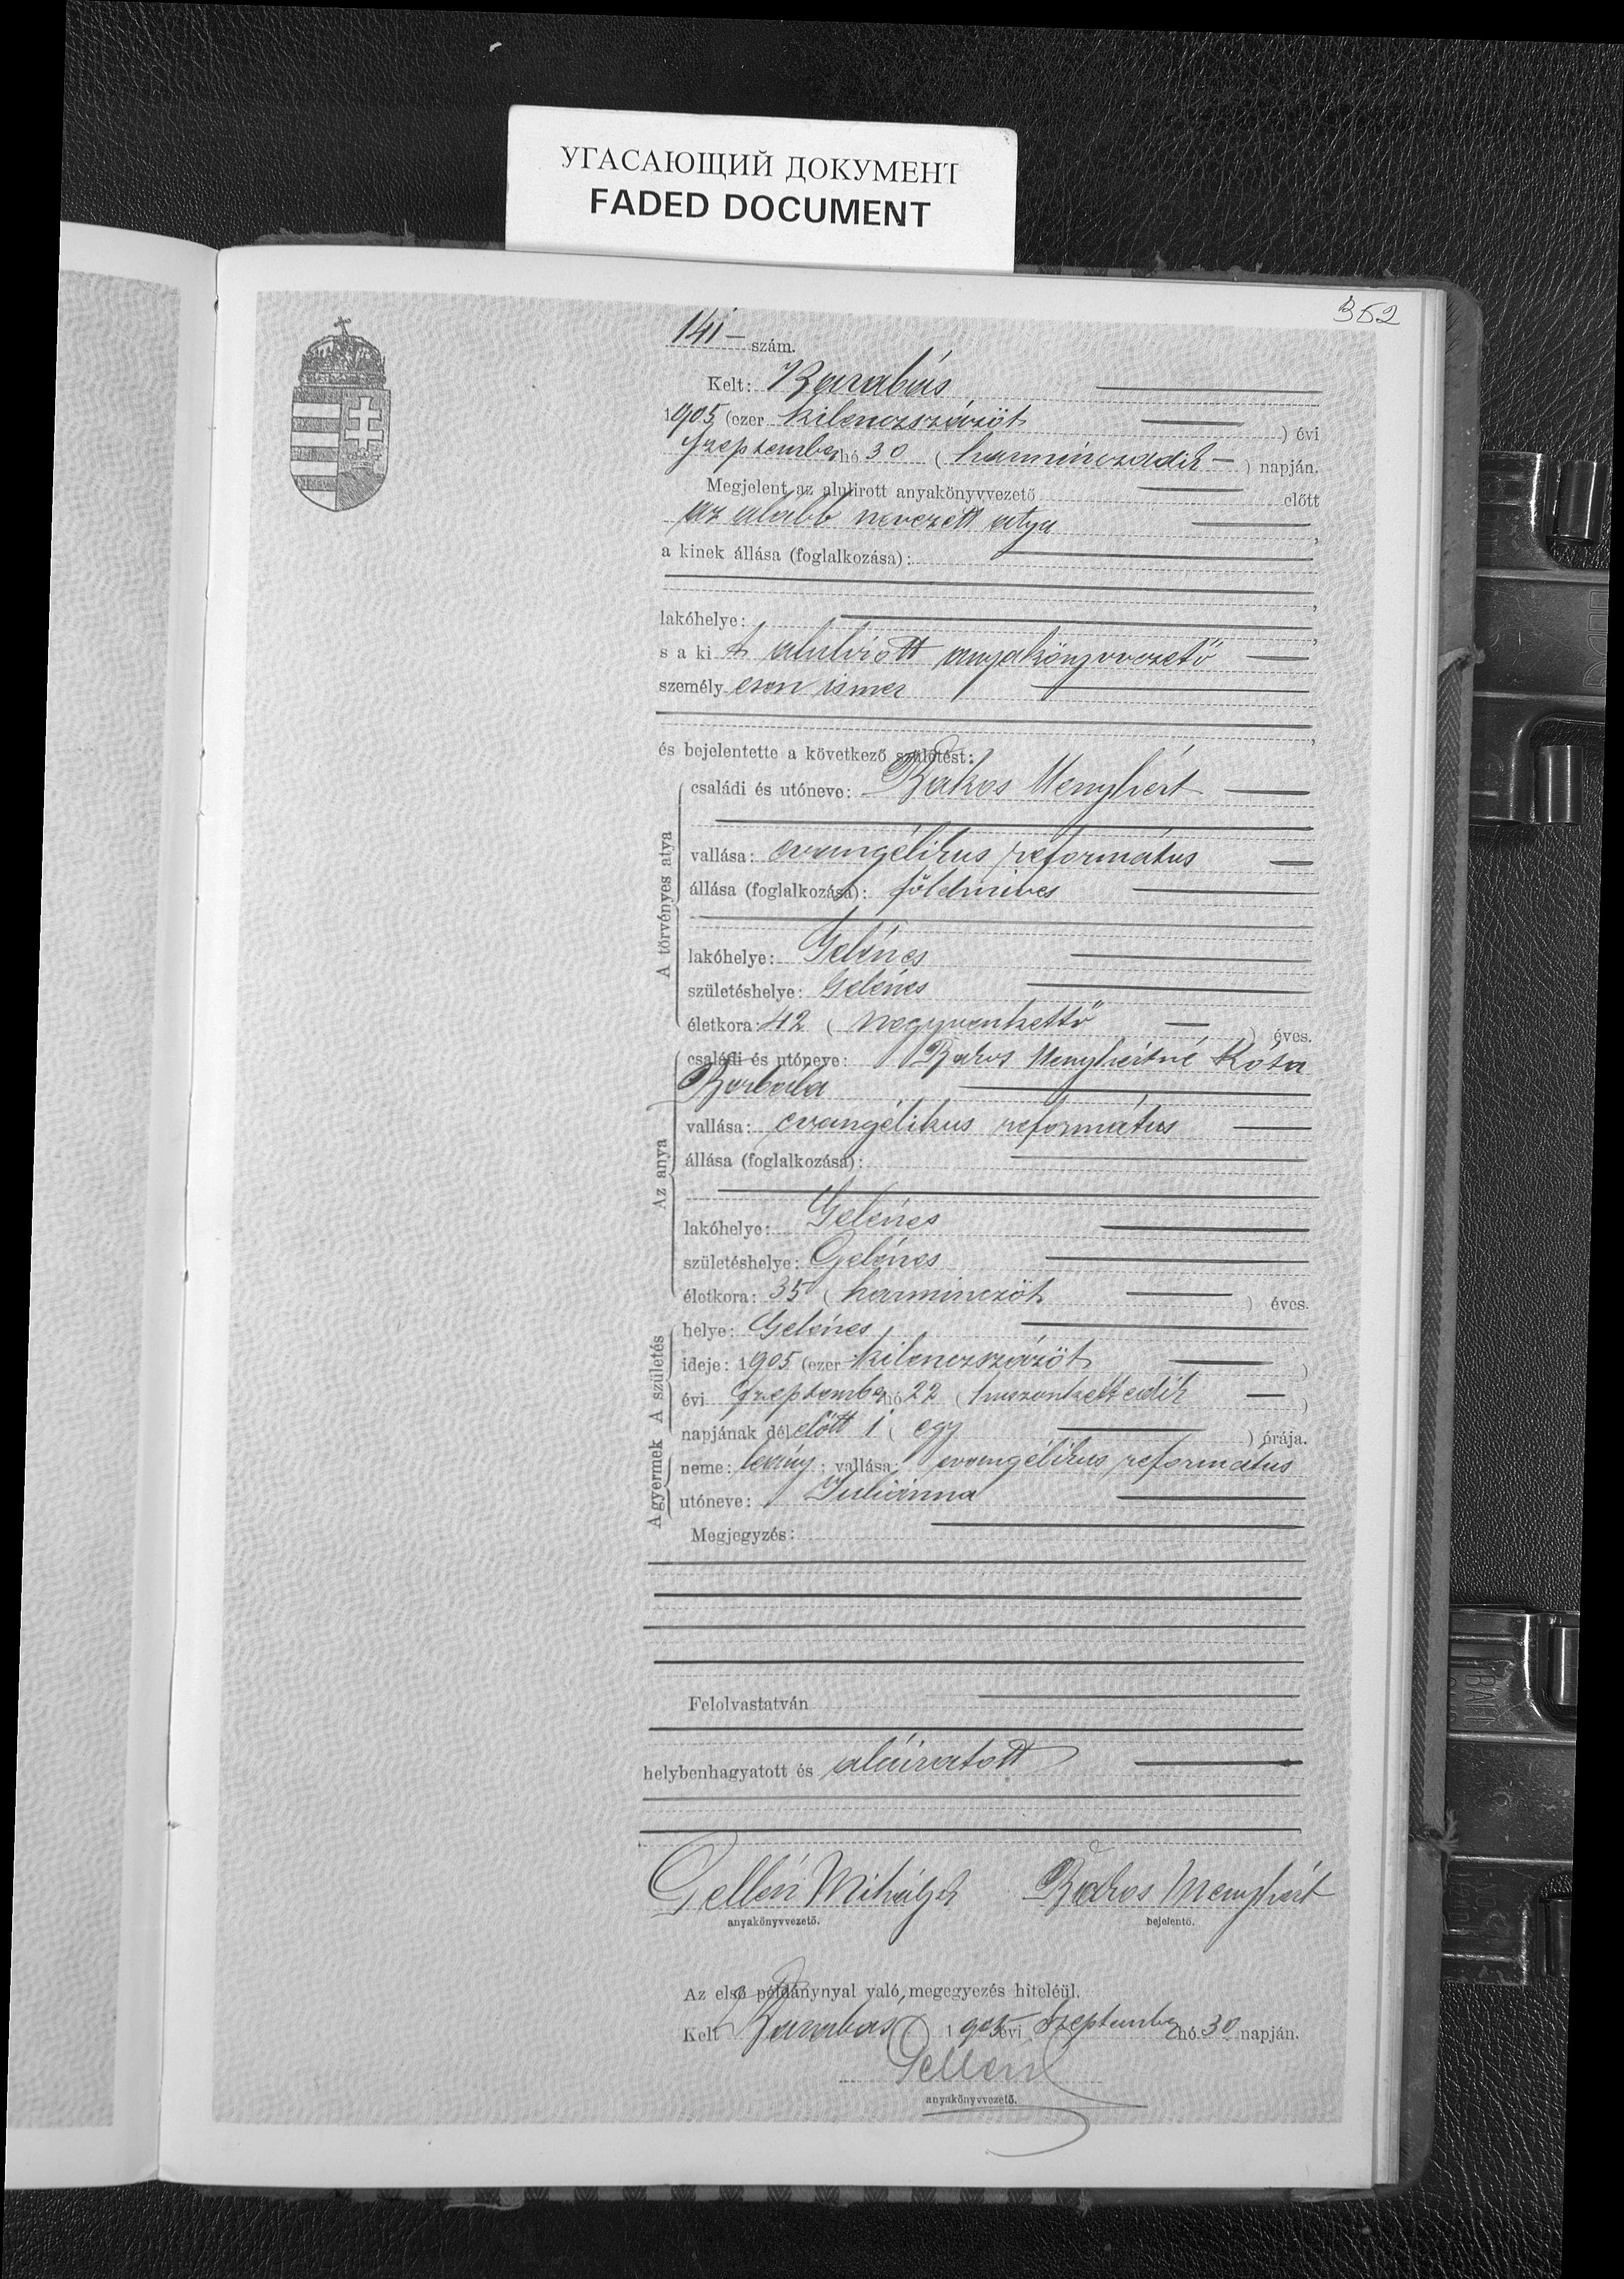 УГАСАЮЩИЙ ДОКУМЕНТ
FADED DOCUMENT
352
141 szám.
Kelt: Barabás
1905 (ezer kilenczszázöt ) évi
Szeptember hó 30 ( harminczadik ) napján.
Megjelent az alulirott anyakönyvvezető előtt
az alább nevezett atya ,
a kinek állása (foglalkozása):
,
lakóhelye: ,
s a kit alulirott anyakönyvvezető
személyesen ismer
,
és bejelentette a következő születést:
A törvényes atya
családi és utóneve: Bakos Menyhért
vallása: evangélikus református
állása (foglalkozása): földmives
lakóhelye: Gelénes
születéshelye: Gelénes
életkora: 42 ( negyvenkettő ) éves.
Az anya
családi és utóneve: Bakos Menyhértné Kósa
Borbála
vallása: evangélikus református
állása (foglalkozása):
lakóhelye: Gelénes
születéshelye: Gelénes
életkora: 35 ( harminczöt ) éves.
A születés
helye: Gelénes
ideje: 1905 (ezer kilenczszázöt )
évi Szeptember hó 22 ( huszonkettedik )
napjának délelőtt 1 ( egy ) órája.
A gyermek
neme: leány; vallása: evangélikus református
utóneve: Julianna
Megjegyzés:
Felolvastatván
helybenhagyatott és aláiratott
Gellén Mihály Bakos Menyhért
anyakönyvvezető. bejelentő.
Az első példánynyal való megegyezés hiteléül.
Kelt Barabás 1905 évi Szeptember hó 30 napján.
Gellén
anyakönyvvezető.